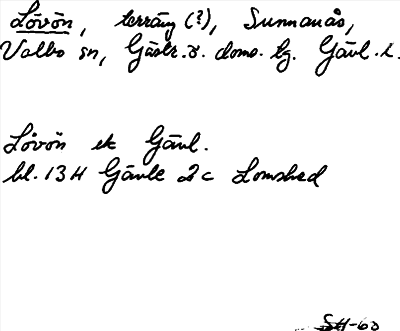 Lövön, terräng (?), Sunnanås,
Valbo sn, Gästr. ö. doms. tg. Gävl. l.
Lövön ek Gävl.
bl. 13 H Gävle 2 c Lomshed
SH-60